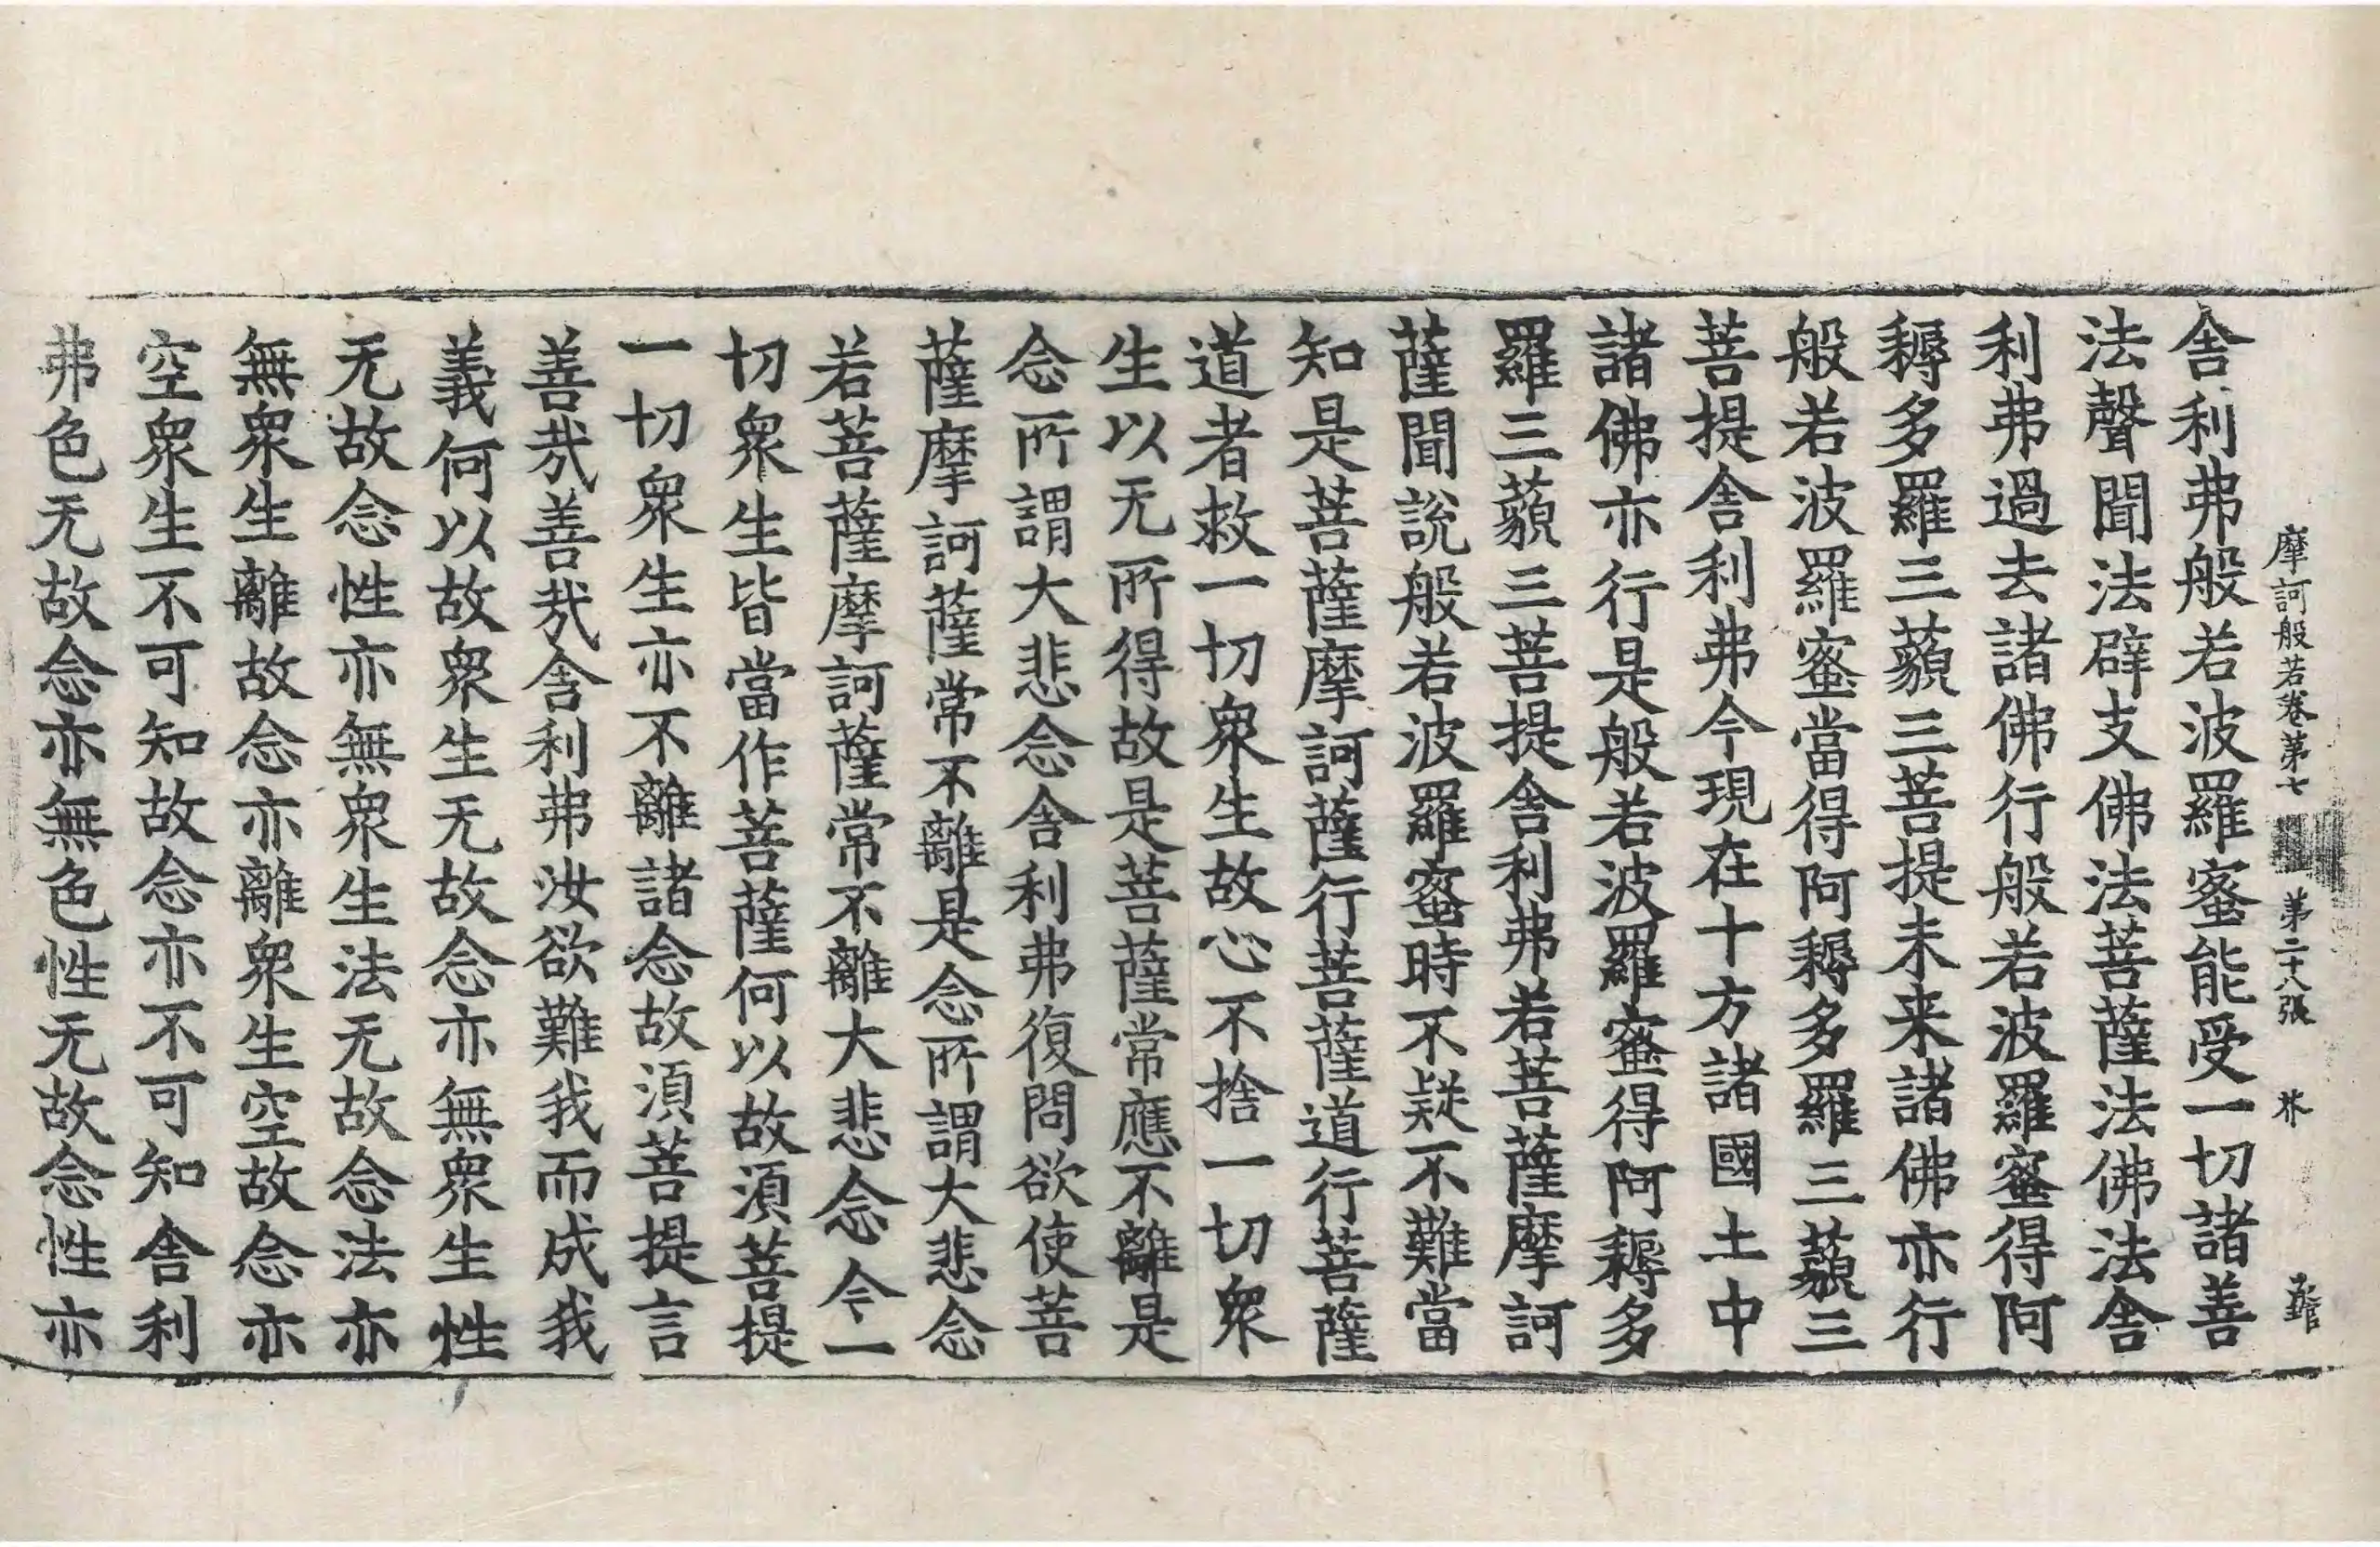 摩訶般若卷第七 第二十八張 芥
舎利弗般若波羅蜜能受一切諸善
法聲聞法辟支佛法菩薩法佛法舎
利弗過去諸佛行般若波羅蜜得阿
耨多羅三藐三菩提未来諸佛亦行
般若波羅蜜當得阿耨多羅三藐三
菩提舎利弗今現在十方諸國土中
諸佛亦行是般若波羅蜜得阿耨多
羅三藐三菩提舎利弗若菩薩摩訶
薩聞說般若波羅蜜時不疑不難當
知是菩薩摩訶薩行菩薩道行菩薩
道者救一切衆生故心不捨一切衆
生以无所得故是菩薩常應不離是
念所謂大悲念舎利弗復問欲使菩
薩摩訶薩常不離是念所謂大悲念
若菩薩摩訶薩常不離大悲念今一
切衆生皆當作菩薩何以故須菩提
一切衆生亦不離諸念故須菩提言
善哉善哉舎利弗汝欲難我而成我
義何以故衆生无故念亦無衆生性
无故念性亦無衆生法无故念法亦
無衆生離故念亦離衆生空故念亦
空衆生不可知故念亦不可知舎利
弗色无故念亦無色性无故念性亦